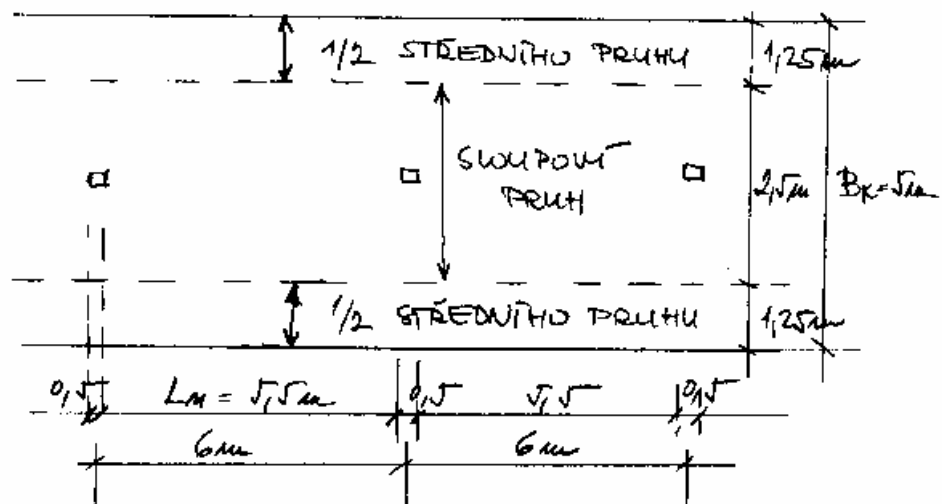 1/2 STŘEDNÍHO PRUHU
1,25m
SLOUPOVÝ
PRUH
2,5m
Bk=5m
1/2 STŘEDNÍHO PRUHU
1,25m
0,5
Ln = 5,5m
0,5
5,5
0,5
6m
6m